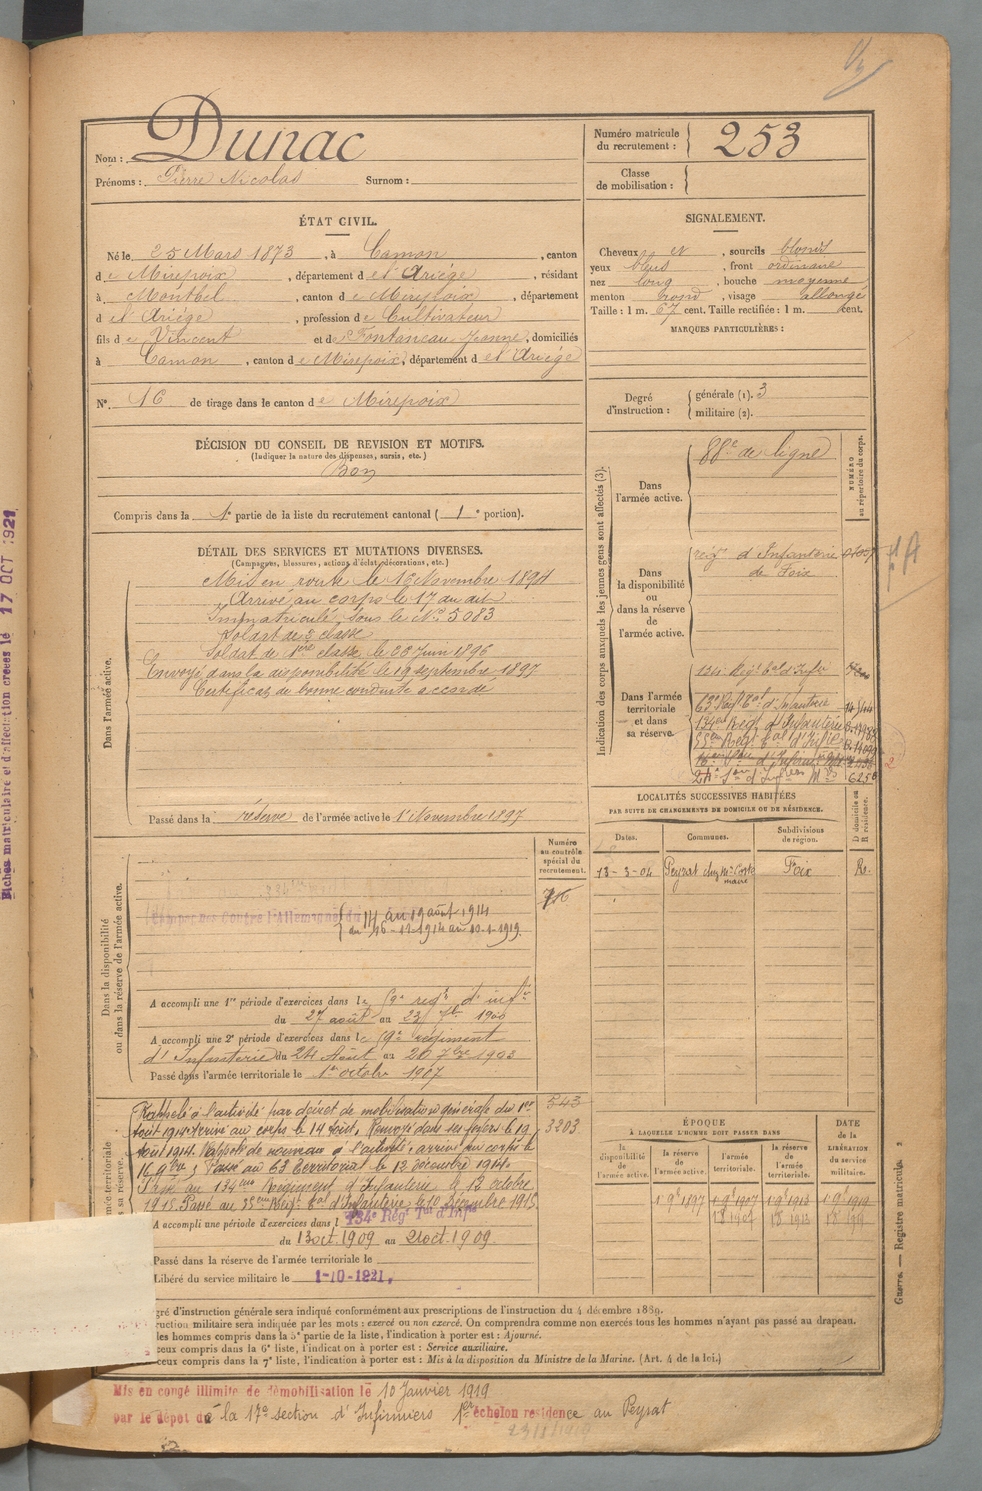 Nom : Dunac
Prénoms : Pierre Nicolas Surnom :
Numéro matricule du recrutement : 253
Classe de mobilisation :
ÉTAT CIVIL.
Né le 25 Mars 1873, à Camon, canton
de Mirepoix, département de l'Ariège, résidant
à Montbel, canton de Mirepoix, département
de l'Ariège, profession de Cultivateur
fils de Vincent et de Fontaneau Jeanne, domiciliés
à Camon, canton de Mirepoix, département de l'Ariège
N° 16 de tirage dans le canton de Mirepoix
SIGNALEMENT.
Cheveux et, sourcils blonds
yeux bleus, front ordinaire
nez long, bouche moyenne
menton rond, visage allongé
Taille : 1 m. 67 cent. Taille rectifiée : 1 m. cent.
MARQUES PARTICULIÈRES :
Degré d'instruction : générale (1). 3
militaire (2).
DÉCISION DU CONSEIL DE REVISION ET MOTIFS.
(Indiquer la nature des dispenses, sursis, etc.)
Bon
Compris dans la 1e partie de la liste du recrutement cantonal ( 1e portion).
DÉTAIL DES SERVICES ET MUTATIONS DIVERSES.
(Campagnes, blessures, actions d'éclat, décorations, etc.)
Dans l'armée active.
Mis en route le 16 Novembre 1894
Arrivé au corps le 17 du dit
Immatriculé sous le N° 5083
Soldat de 2e classe
Soldat de 1ère classe le 28 Juin 1896
Envoyé dans la disponibilité le 19 septembre 1897
Certificat de bonne conduite accordé
Passé dans la réserve de l'armée active le 1er Novembre 1897
Indication des corps auxquels les jeunes gens sont affectés (3).
NUMÉRO au répertoire du corps.
Dans l'armée active. 88e de ligne
Dans la disponibilité ou dans la réserve de l'armée active.
régt d'Infanterie
de Foix
Dans l'armée territoriale et dans sa réserve.
134e Régt tal d'Infie
63e Régt tal d'Infanterie
134e Régt d'Infanterie
55e Régt tal d'Infie
LOCALITÉS SUCCESSIVES HABITÉES
PAR SUITE DE CHANGEMENTS DE DOMICILE OU DE RÉSIDENCE.
Dates. Communes. Subdivisions de région. D domicile ou R résidence.
13-3-04 Peyrat Foix Re.
Numéro au contrôle spécial du recrutement.
716
Dans la disponibilité ou dans la réserve de l'armée active.
Campagnes Contre l'Allemagne du 14 au 19 août 1914
du 16-11-1914 au 10-1-1919.
A accompli une 1re période d'exercices dans le 59e régt d'infie
du 27 août au 23 7bre 1900
A accompli une 2e période d'exercices dans le 59e régiment
d'Infanterie du 24 Août au 20 7bre 1903
Passé dans l'armée territoriale le 1er octobre 1907
Rappelé à l'activité par décret de mobilisation générale du 1er
Août 1914 Arrivé au corps le 14 Août. Renvoyé dans ses foyers le 19
Août 1914. Rappelé de nouveau à l'activité, arrivé au corps le
16 9bre. Passé au 63 Territorial le 12 décembre 1914.
Passé au 134ème Régiment d'Infanterie le 13 octobre
1915. Passé au 55ème Régt tal d'Infanterie le 10 Décembre 1915
543
3203
A accompli une période d'exercices dans l 134e Régt Tal d'Infie
du 13 oct. 1909 au 21 oct. 1909
Passé dans la réserve de l'armée territoriale le
Libéré du service militaire le 1-10-1921.
ÉPOQUE
À LAQUELLE L'HOMME DOIT PASSER DANS
la disponibilité de l'armée active. la réserve de l'armée active. l'armée territoriale. la réserve de l'armée territoriale.
DATE de la LIBÉRATION du service militaire.
1 9e 1897 1 9e 1907 1 9e 1913 1 9e 1919
18 1907 18 1913 18 1919
gré d'instruction générale sera indiqué conformément aux prescriptions de l'instruction du 4 décembre 1889.
ruction militaire sera indiquée par les mots : exercé ou non exercé. On comprendra comme non exercés tous les hommes n'ayant pas passé au drapeau.
les hommes compris dans la 5e partie de la liste, l'indication à porter est : Ajourné.
ceux compris dans la 6e liste, l'indication à porter est : Service auxiliaire.
ceux compris dans la 7e liste, l'indication à porter est : Mis à la disposition du Ministre de la Marine. (Art. 4 de la loi.)
Mis en congé illimité de démobilisation le 10 Janvier 1919
par le dépôt de la 17e section d'Infirmiers 1er échelon residence au Peyrat
Guerre. — Registre matricule. 2
Fiches matriculaire et d'affectation creées le 17 OCT 1921